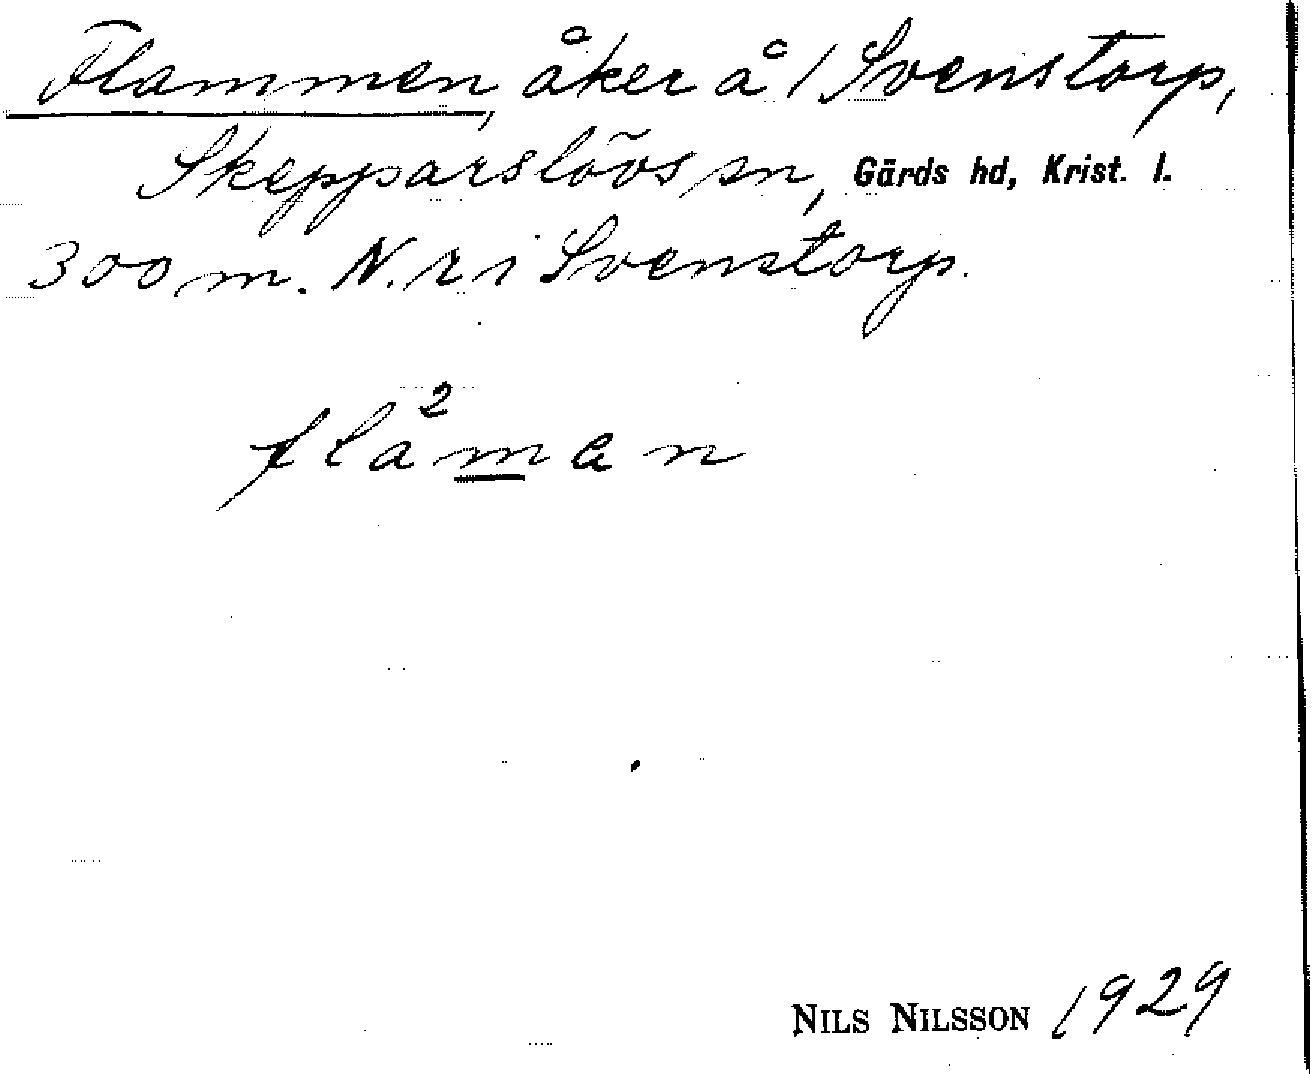 Flammen, åker å 1 Svenstorp,
Skepparslövs sn, Gärds hd, Krist. l.
300 m. N. r i Svenstorp.
fla²man
NILS NILSSON 1929